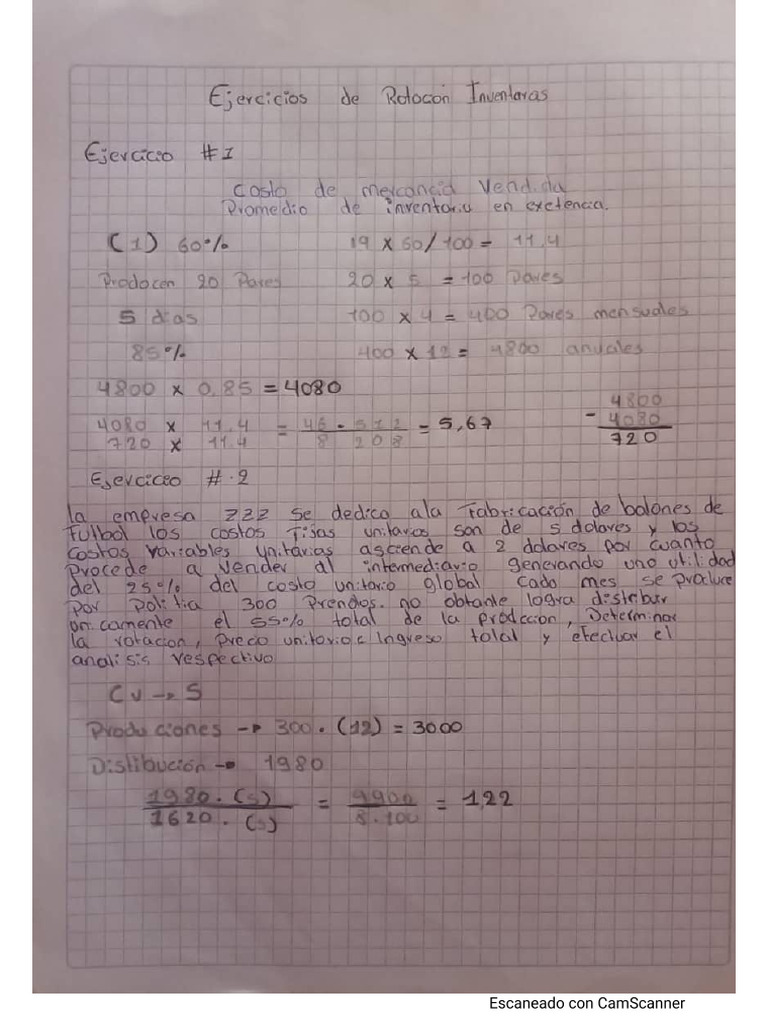 Ejercicios de Rotocon Inventaras
Ejercicio #1
Costo de mercancia Vendida
Promedio de inventario en exetencia.
(1) 60% 19 x 60/100 = 11,4
Producen 20 Pares 20 x 5 = 100 Pares
5 dias 100 x 4 = 400 Pares mensuales
85% 400 x 12 = 4800 anuales
4800 x 0.85 = 4080
4800
4080 x 11.4 = 46.512 = 5,67 - 4080
720 x 11.4 8 208 720
Ejercicio #.2
la empresa ZZZ se dedica ala Fabricación de balones de
Futbol los costos Fijas unitarios son de 5 dolares y los
costos variables unitarias asciende a 2 dolares por cuanto
Procede a vender al intermediario generando uno utilidad
del 25% del costo unitario global cado mes se produce
por politia 300 Prendos. no obtante logra distribuir
unicamente el 55% total de la prodccion, Determinar
la rotacion, precio unitario e Ingreso total y efectuar el
analisis respectivo
Cu → 5
Produciones → 300. (12) = 3000
Distibución → 1980
1980. (5) = 9900 = 1,22
1620. (5) 8.100
Escaneado con CamScanner